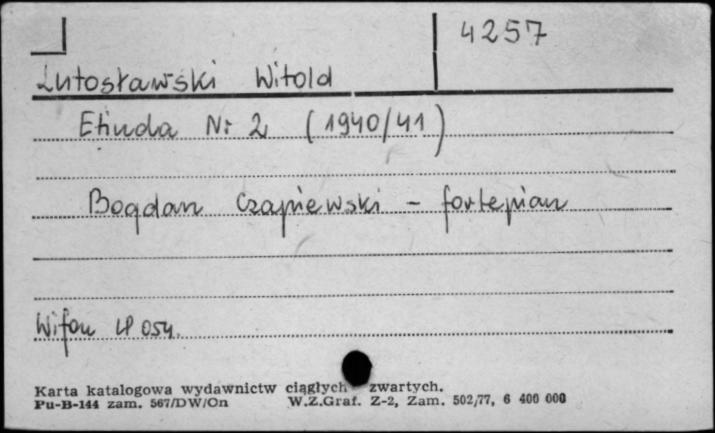 4257
Lutosławski Witold
Etiuda Nr 2 (1940/41)
Bogdan Czapiewski - fortepian
Wifon LP 054.
Karta katalogowa wydawnictw ciągłych zwartych.
Pu-B-144 zam. 567/DW/On W.Z.Graf. Z-2, Zam. 502/77, 6 400 000